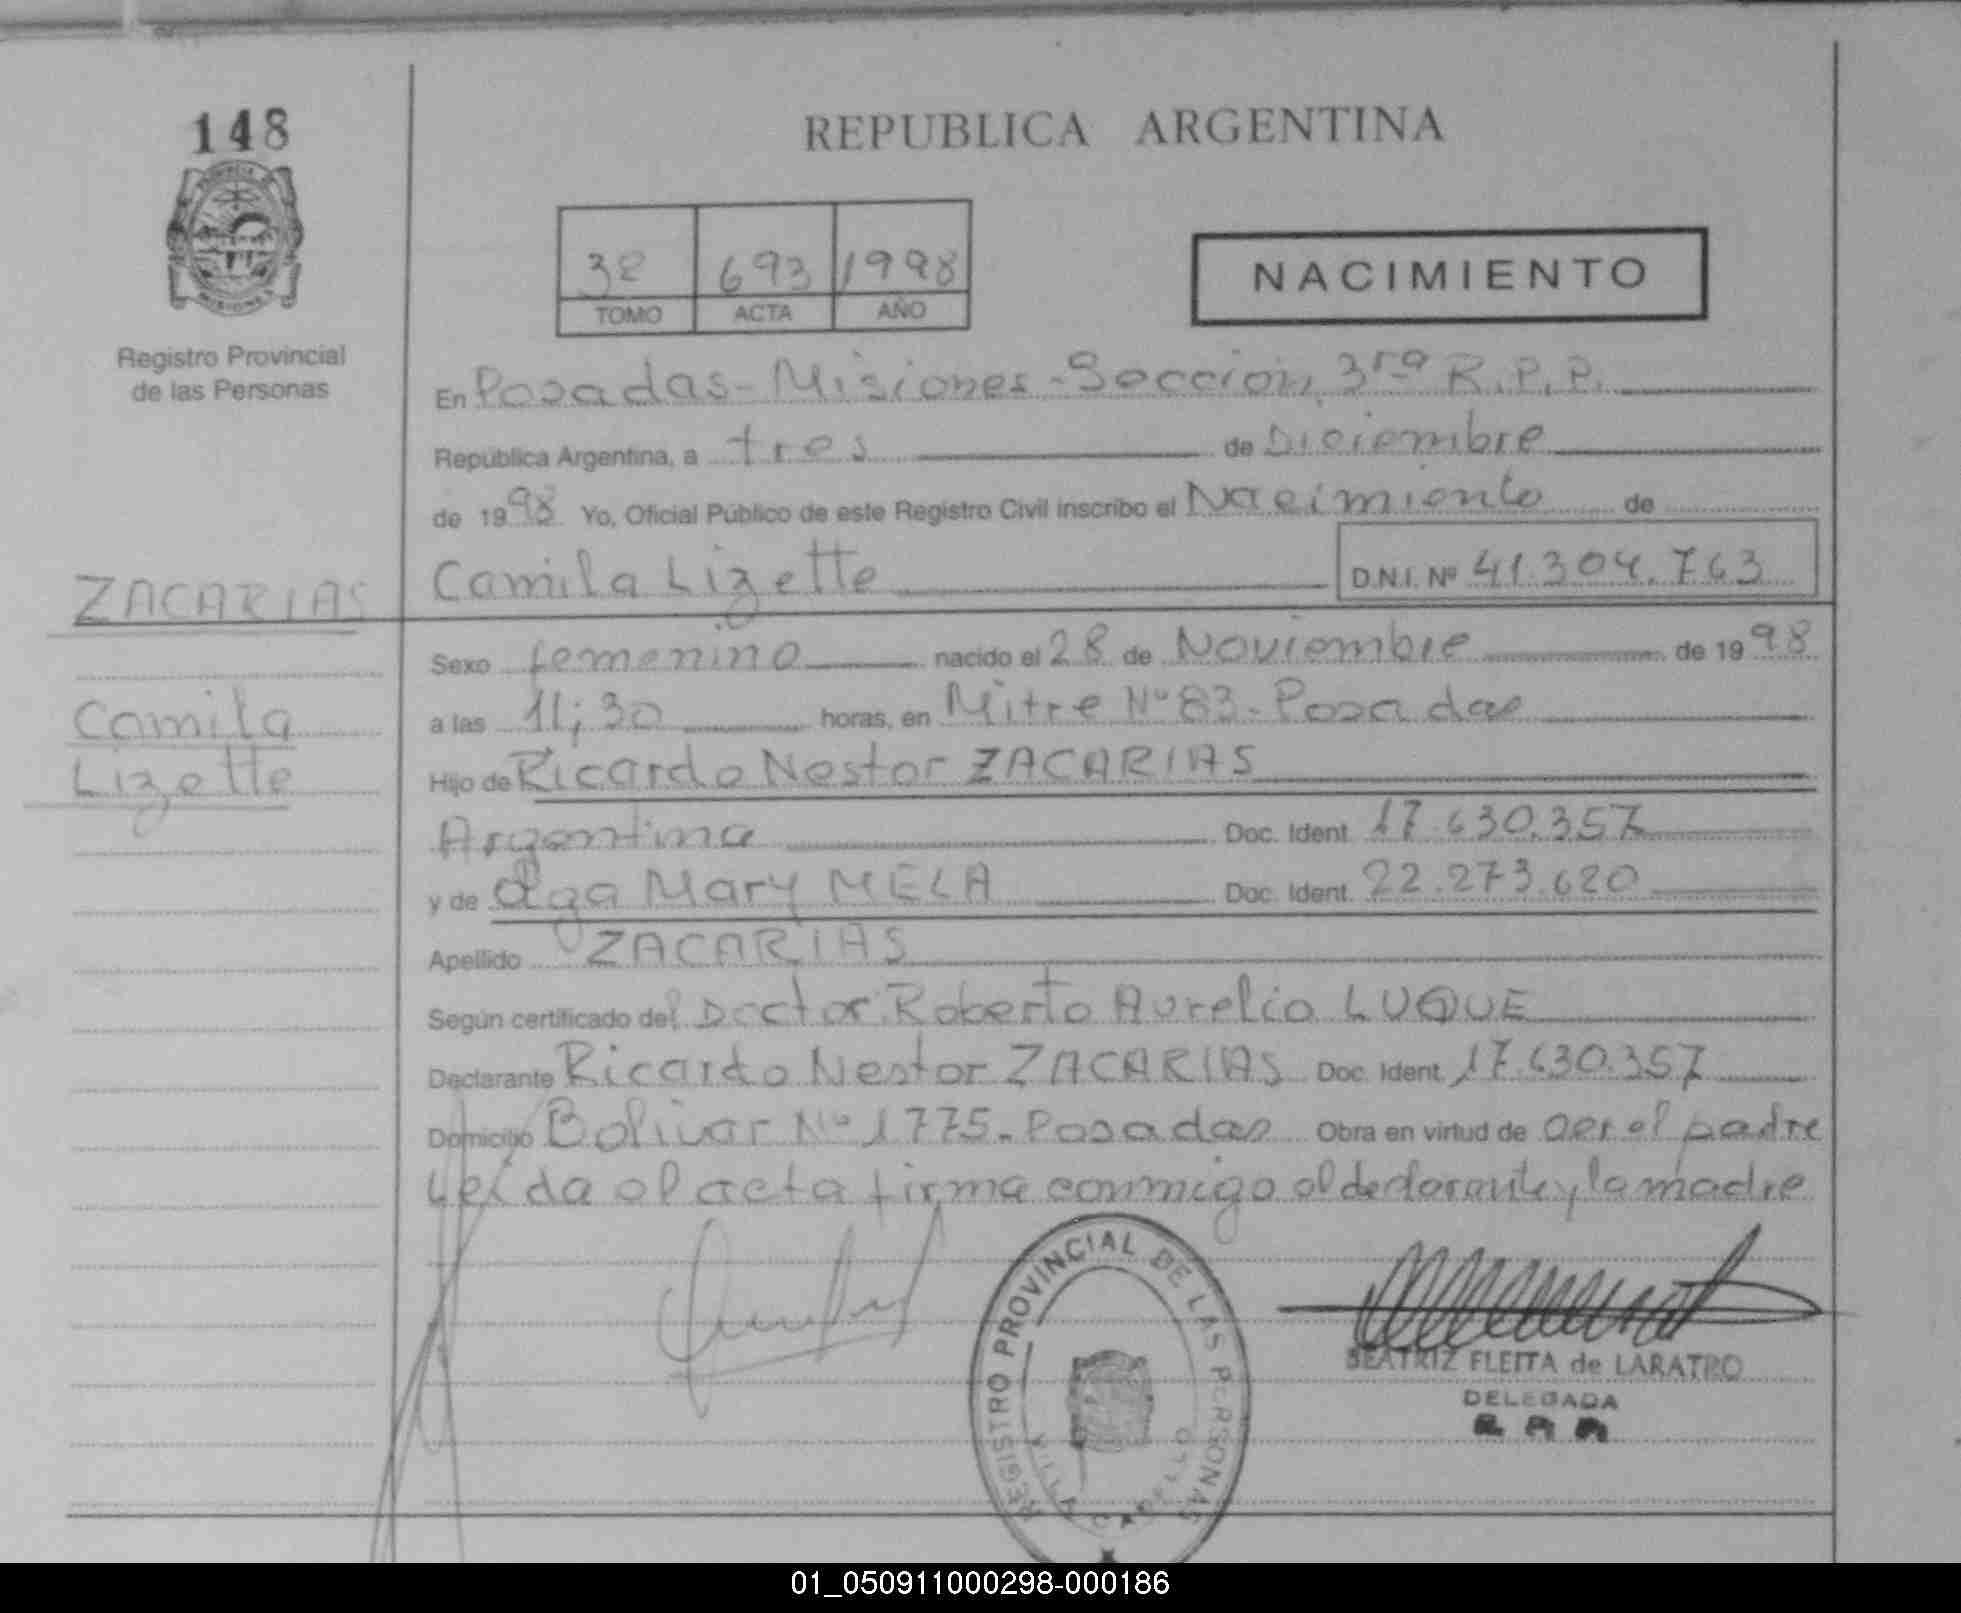 148
REPUBLICA ARGENTINA
693 1998
TOMO ACTA AÑO
NACIMIENTO
Registro Provincial
de las Personas
En Posadas - Misiones - Sección, 3ra R.P.P.
República Argentina, a tres de Diciembre
de 1998 Yo, Oficial Público de este Registro Civil inscribo el Nacimiento de
Camila Lizette D.N.I. Nº 41.304.763
ZACARIAS
Camila
Lizette
Sexo femenino nacido el 28 de Noviembre de 1998
a las 11;30 horas, en Mitre Nº 83 - Posadas
Hijo de Ricardo Nestor ZACARIAS
Argentina Doc. Ident. 17.630.357
y de Olga Mary MELA Doc. Ident. 22.273.620
Apellido ZACARIAS
Según certificado del Doctor Roberto Aurelio LUQUE
Declarante Ricardo Nestor ZACARIAS Doc. Ident. 17.630.357
Domicilio Bolivar Nº 1775 - Posadas Obra en virtud de ser el padre
Leída el acta firma conmigo el declarante y la madre
REGISTRO PROVINCIAL DE LAS PERSONAS
VILLA CABELLO
BEATRIZ FLEITA de LARATRO
DELEGADA
01_050911000298-000186